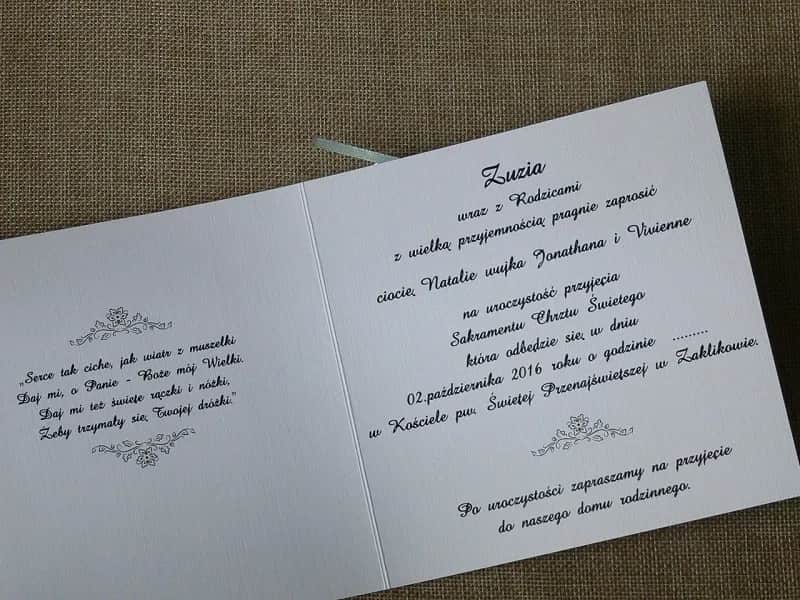 „Serce tak ciche, jak wiatr z muszelki
Daj mi, o Panie - Boże mój Wielki.
Daj mi też święte rączki i nóżki,
Żeby trzymały się Twojej dróżki.”
Zuzia
wraz z Rodzicami
z wielką przyjemnością pragnie zaprosić
ciocię Natalie wujka Jonathana i Vivienne
na uroczystość przyjęcia
Sakramentu Chrztu Świętego
która odbędzie się w dniu
02.października 2016 roku o godzinie .........
w Kościele pw. Świętej Przenajświętszej w Zaklikowie.
Po uroczystości zapraszamy na przyjęcie
do naszego domu rodzinnego.